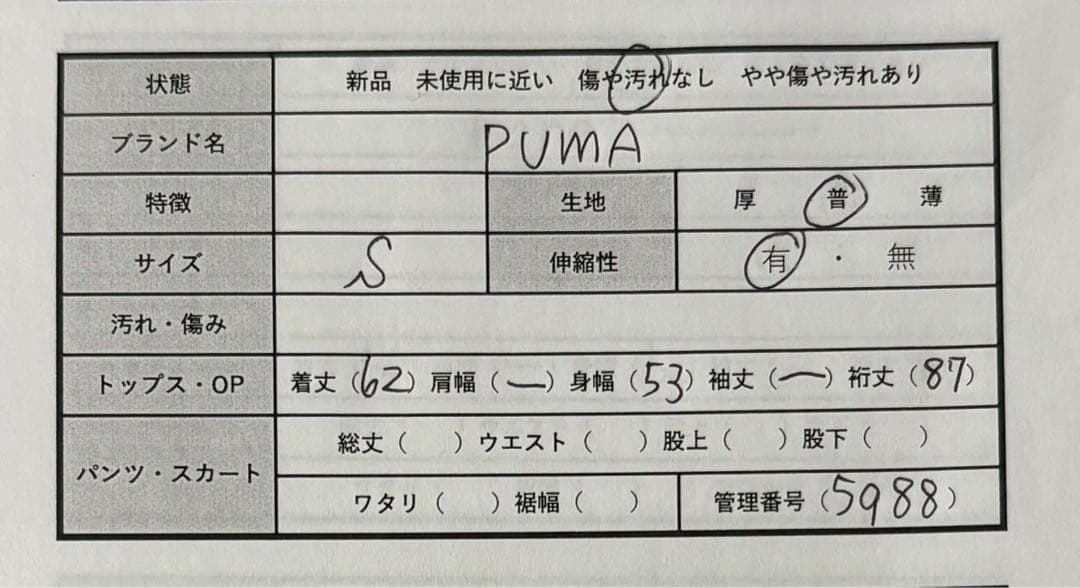 状態 新品 未使用に近い 傷や汚れなし やや傷や汚れあり
ブランド名 PUMA
特徴 生地 厚 普 薄
サイズ S 伸縮性 有 ・ 無
汚れ・傷み
トップス・OP 着丈（62）肩幅（ー）身幅（53）袖丈（ー）裄丈（87）
パンツ・スカート 総丈（ ）ウエスト（ ）股上（ ）股下（ ）
ワタリ（ ）裾幅（ ） 管理番号（5988）